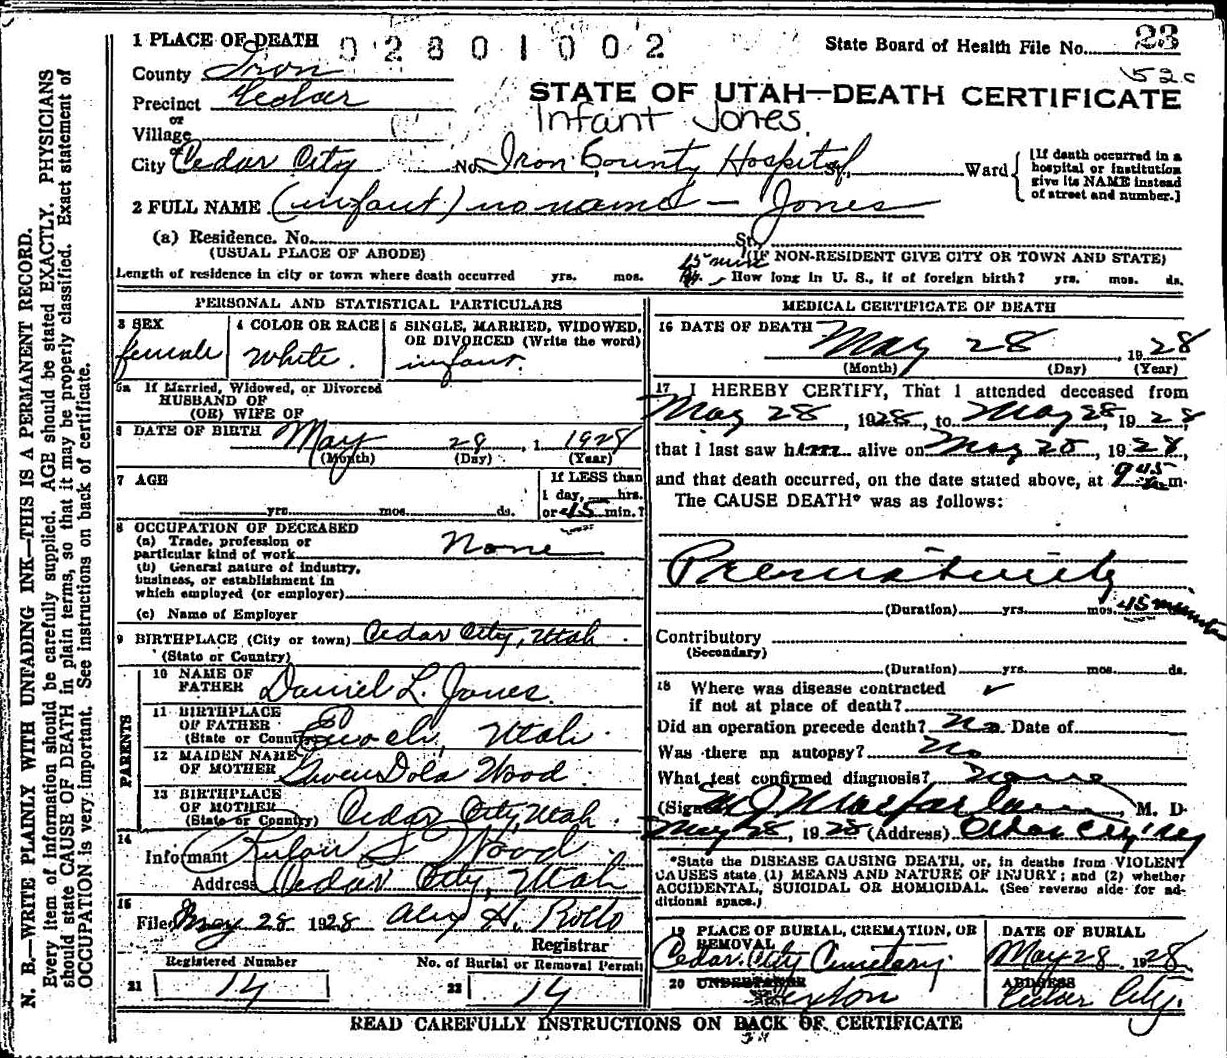 1 PLACE OF DEATH 02801002 State Board of Health File No. 23
County Iron 52c
Precinct Cedar STATE OF UTAH—DEATH CERTIFICATE
or
Village Infant Jones.
or
City Cedar City No. Iron County Hospital St., Ward [If death occurred in a hospital or institution give its NAME instead of street and number.]
2 FULL NAME (infant) no name - Jones
(a) Residence. No. St.,
(USUAL PLACE OF ABODE) (IF NON-RESIDENT GIVE CITY OR TOWN AND STATE)
Length of residence in city or town where death occurred yrs. mos. 15 min How long in U. S., if of foreign birth? yrs. mos. ds.
PERSONAL AND STATISTICAL PARTICULARS
3 SEX 4 COLOR OR RACE 5 SINGLE, MARRIED, WIDOWED,
OR DIVORCED (Write the word)
female White. infant.
5a If Married, Widowed, or Divorced
HUSBAND OF
(OR) WIFE OF
6 DATE OF BIRTH May 28 1 1928
(Month) (Day) (Year)
7 AGE If LESS than
1 day, hrs.
yrs. mos. ds. or 15 min.?
8 OCCUPATION OF DECEASED
(a) Trade, profession or
particular kind of work None
(b) General nature of industry,
business, or establishment in
which employed (or employer)
(c) Name of Employer
9 BIRTHPLACE (City or town) Cedar City, Utah.
(State or Country)
PARENTS
10 NAME OF
FATHER Daniel L. Jones.
11 BIRTHPLACE
OF FATHER
(State or Country) Enoch, Utah.
12 MAIDEN NAME
OF MOTHER GwenDola Wood
13 BIRTHPLACE
OF MOTHER
(State or Country) Cedar City, Utah.
14
Informant S. Wood
Address Cedar City, Utah
15
Filed May 28 1928 Alex H. Rollo
Registrar
Registered Number No. of Burial or Removal Permit
21 14 22 14
MEDICAL CERTIFICATE OF DEATH
16 DATE OF DEATH May 28, 1928
(Month) (Day) (Year)
17 I HEREBY CERTIFY, That I attended deceased from
May 28, 1928, to May 28, 1928,
that I last saw him alive on May 28, 1928,
and that death occurred, on the date stated above, at 9 45 a.m.
The CAUSE DEATH* was as follows:
Prematurity
(Duration) yrs. mos. 15 minutes
Contributory
(Secondary)
(Duration) yrs. mos. ds.
18 Where was disease contracted
if not at place of death? ✓
Did an operation precede death? No. Date of
Was there an autopsy? No
What test confirmed diagnosis? None
(Signed) M J Macfarlane, M. D.
May 28, 1928 (Address) Cedar City,
*State the DISEASE CAUSING DEATH, or, in deaths from VIOLENT
CAUSES state (1) MEANS AND NATURE OF INJURY; and (2) whether
ACCIDENTAL, SUICIDAL OR HOMICIDAL. (See reverse side for ad-
ditional space.)
19 PLACE OF BURIAL, CREMATION, OR
REMOVAL DATE OF BURIAL
Cedar City Cemetery. May 28 1928.
20 UNDERTAKER ADDRESS
Sexton Cedar City.
READ CAREFULLY INSTRUCTIONS ON BACK OF CERTIFICATE
N. B.—WRITE PLAINLY WITH UNFADING INK—THIS IS A PERMANENT RECORD.
Every item of information should be carefully supplied. AGE should be stated EXACTLY. PHYSICIANS
should state CAUSE OF DEATH in plain terms, so that it may be properly classified. Exact statement of
OCCUPATION is very important. See instructions on back of certificate.